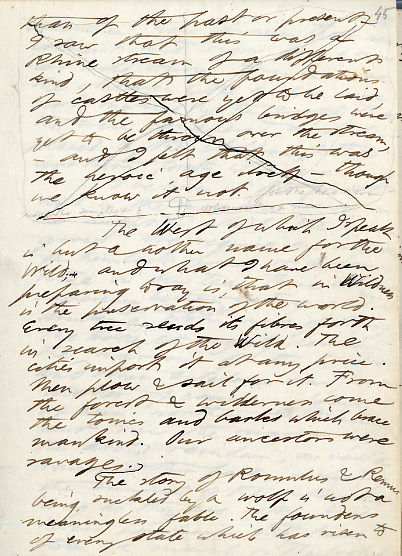 45
than of the past or present
I saw that this was a
Rhine stream of a different
kind, that the foundations
of castles were yet to be laid,
and the famous bridges were
yet to be thrown over the stream,
— and I felt that this was
the heroic age itself — though
we know it not
The West of which I speak
is but another name for the
Wild, and what I have been
preparing to say is, that in Wildness
is the preservation of the world.
Every tree sends its fibres forth
in search of the Wild. The
cities import it at any price.
Men plow & sail for it. From
the forest & wilderness come
the tonics and barks which brace
mankind. Our ancestors were
savages.
The story of Romulus & Remus
being suckled by a wolf is not a
meaningless fable. The founders
of every state which has risen to